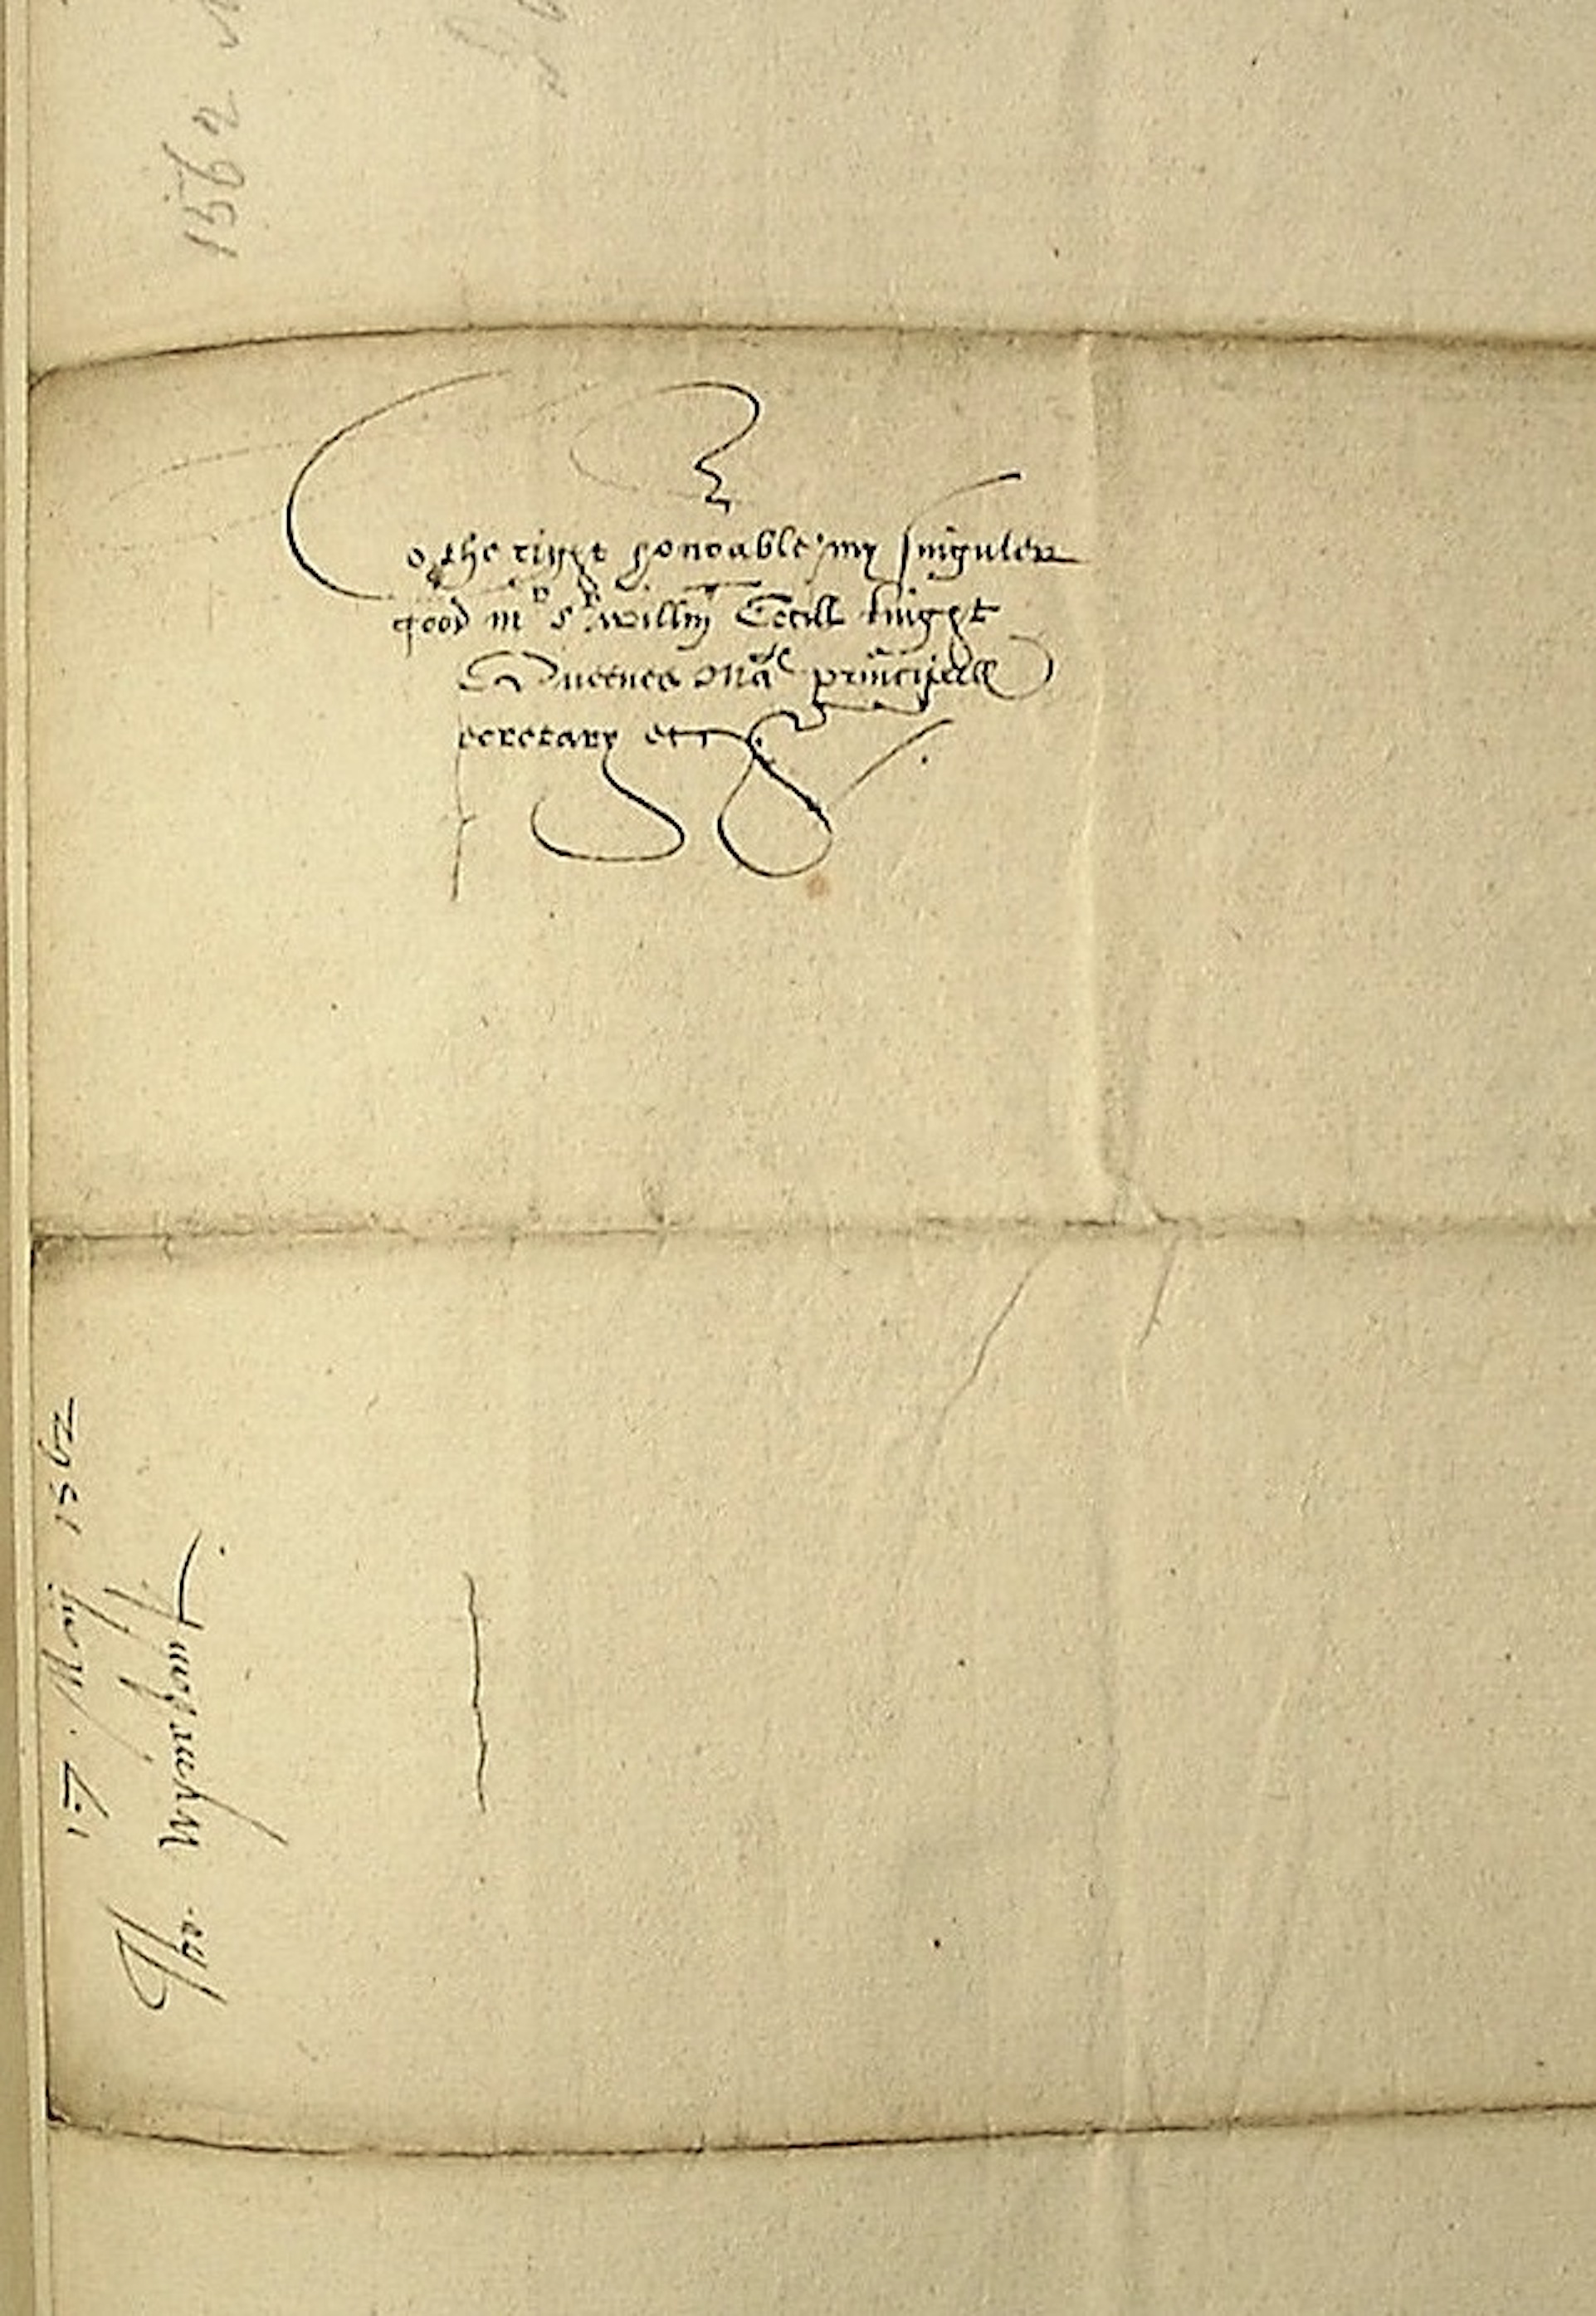 To the right honorable my singuler
good mr Sr Willm Cecill knight
Queenes Mates principall
Secretary etc
17 Maij 1562
Tho. Wyndham
1562